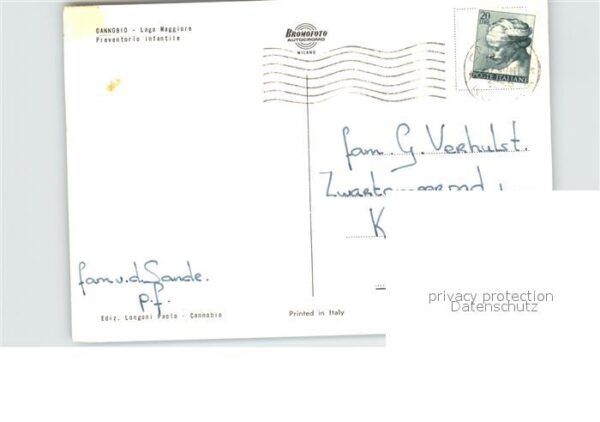 CANNOBIO - Lago Maggiore
Preventorio infantile
BROMOFOTO
AUTOCROMO
MILANO
20
POSTE ITALIANE
fam. G. Verhulst.
K
fam. v. d. Sande.
p.f.
Ediz. Longoni Paolo - Cannobio
Printed in Italy
privacy protection
Datenschutz